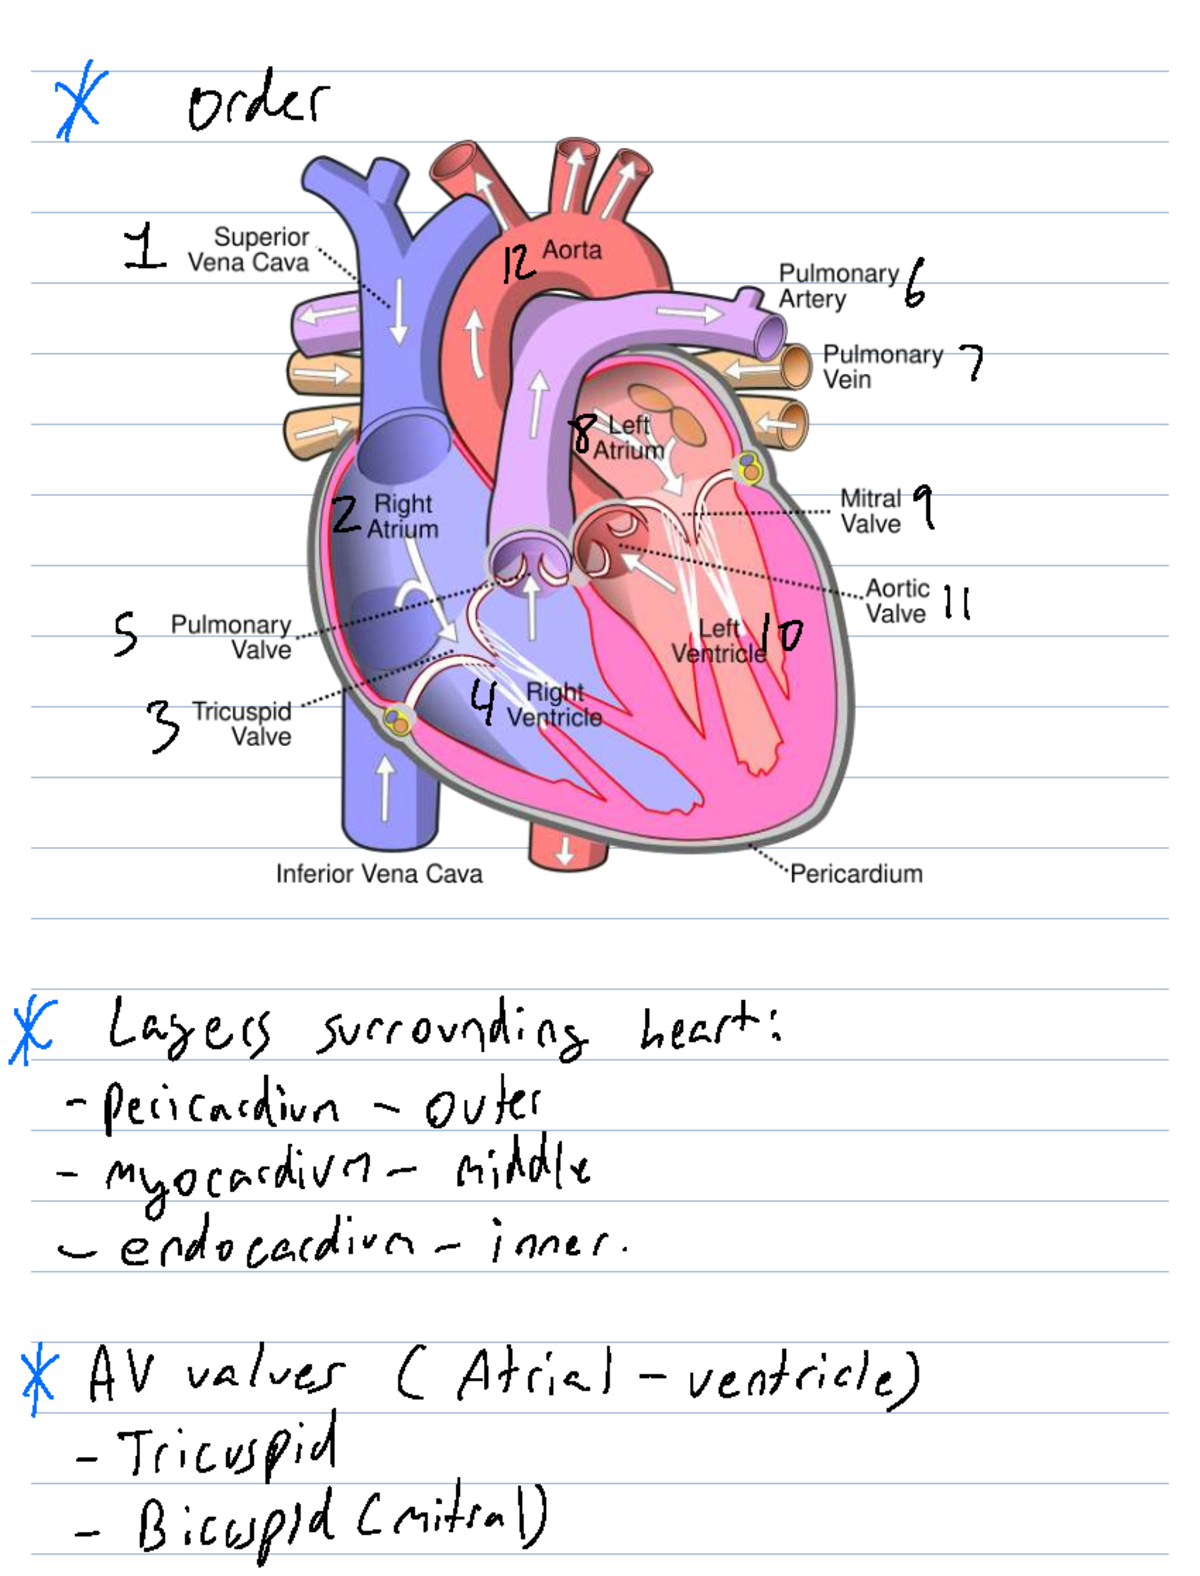 * order
1 Superior
Vena Cava
12 Aorta
Pulmonary 6
Artery
Pulmonary 7
Vein
8 Left
Atrium
2 Right
Atrium
Mitral 9
Valve
Aortic 11
Valve
5 Pulmonary
Valve
Left 10
Ventricle
3 Tricuspid
Valve
4 Right
Ventricle
Inferior Vena Cava
Pericardium
* Layers surrounding heart:
- pericardium - outer
- myocardium - middle
- endocardium - inner.
* AV valves (Atrial - ventricle)
- Tricuspid
- Bicuspid (mitral)